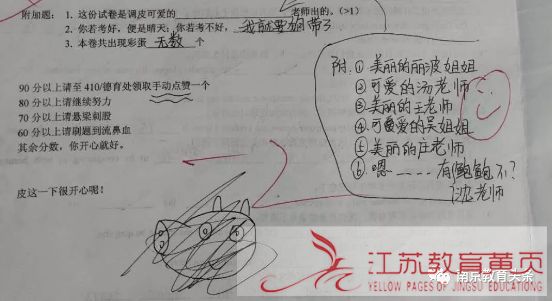 附加题: 1. 这份试卷是调皮可爱的________老师出的。(>1)
2. 你若考好,便是晴天;你若考不好,我就要烟带了
3. 本卷共出现彩蛋 无数 个
90 分以上请至 410/德育处领取手动点赞一个
80 分以上请继续努力
70 分以上请悬梁刺股
60 分以上请刷题到流鼻血
其余分数,你开心就好。
皮这一下很开心呢!
附.①美丽的丽波姐姐
②可爱的汤老师
③美丽的王老师
④可爱的吴姐姐
⑤美丽的庄老师
⑥嗯----有鲍鲍不?
沈老师
江苏教育黄页
YELLOW PAGES OF JINGSU EDUCATIONG
南京教育头条